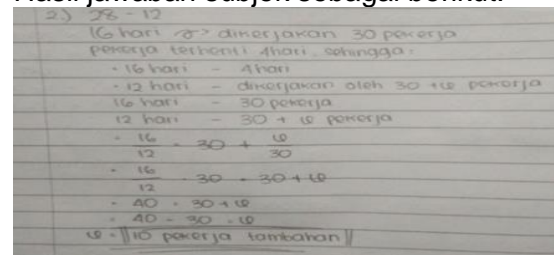 Hasil jawaban subjek sebagai berikut:
2.) 28 - 12
16 hari => dikerjakan 30 pekerja
pekerja terhenti 4 hari, sehingga:
- 16 hari - 4 hari
- 12 hari - dikerjakan oleh 30 + φ pekerja
16 hari - 30 pekerja
12 hari - 30 + φ pekerja
- 16/12 - 30 + φ/30
- 16/12 - 30 - 30 + φ
- 40 - 30 + φ
- 40 - 30 - φ
φ - || 10 pekerja tambahan ||